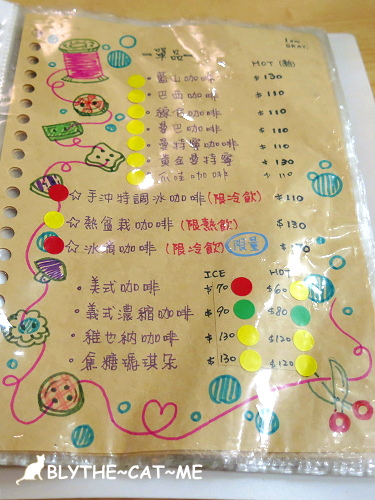 單品
HOT (熱)
藍山咖啡 $130
巴西咖啡 $110
綠色咖啡 $110
曼巴咖啡 $110
曼特寧咖啡 $110
黃金曼特寧 $130
爪哇咖啡 $110
☆手沖特調冰咖啡(限冷飲) $110
☆熱盆栽咖啡(限熱飲) $130
☆冰滴咖啡(限冷飲) 限量
ICE HOT
美式咖啡 $70 $60
義式濃縮咖啡 $90 $80
維也納咖啡 $130 $120
焦糖瑪琪朵 $130 $120
BLYTHE~CAT~ME